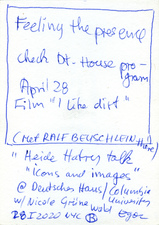 Feeling the presence
check Dt-House pro-
gram
April 28
Film "I like dirt"
(met RALF BEUSCHLEIN there)
"Heide Hatry talk
"icons and images"
@ Deutsches Haus/Columbia
University
w/ Nicole Grüne Wald
28 I 2020 NYC